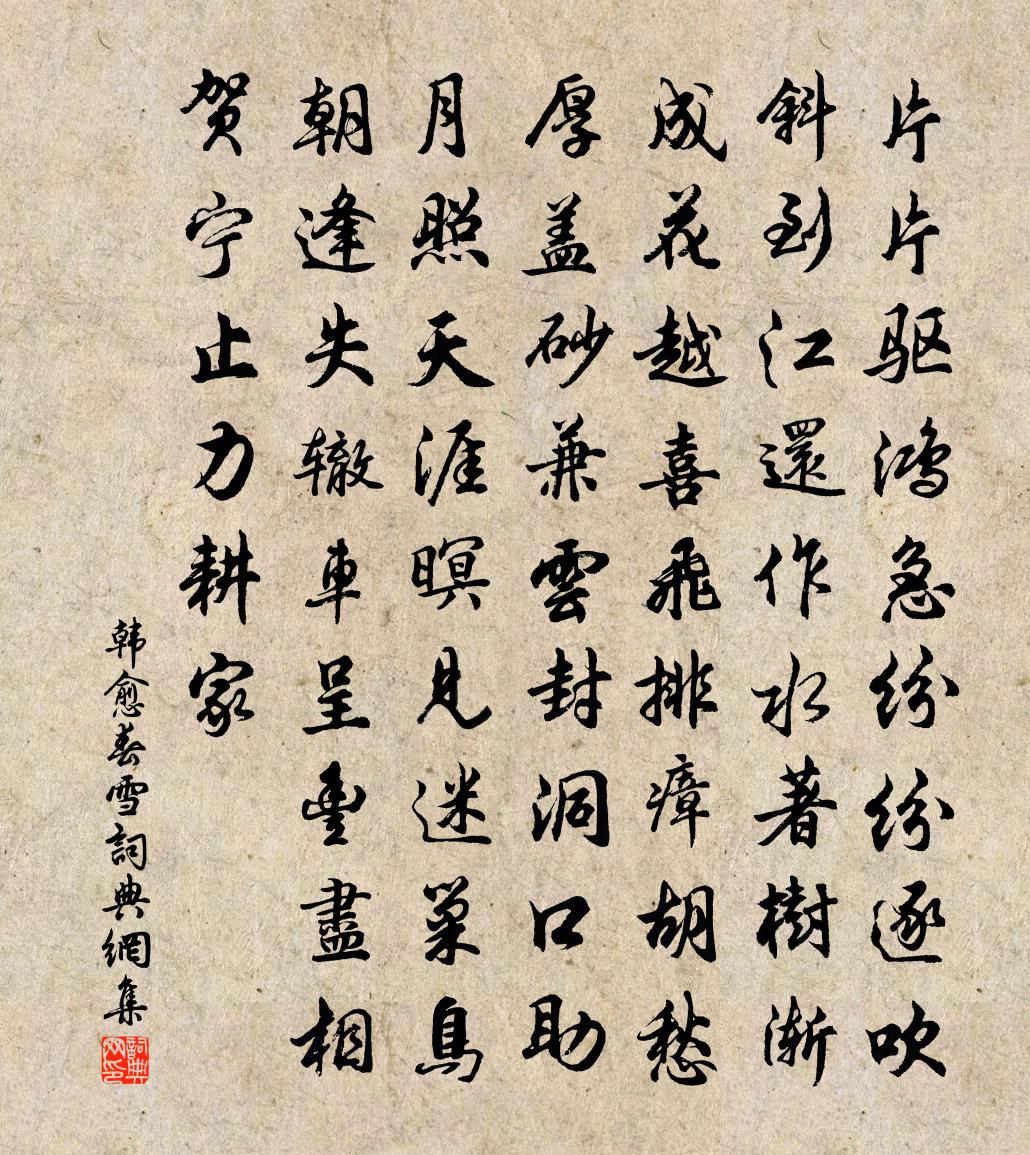 片片驱鸿急纷纷逐吹
斜到江還作水著樹渐
成花越喜飛排瘴胡愁
厚盖砂兼雲封洞口助
月照天涯暝見迷巢鳥
朝逢失辙車呈豐盡相
贺宁止力耕家
韩愈春雪詞典網集
詞典网印